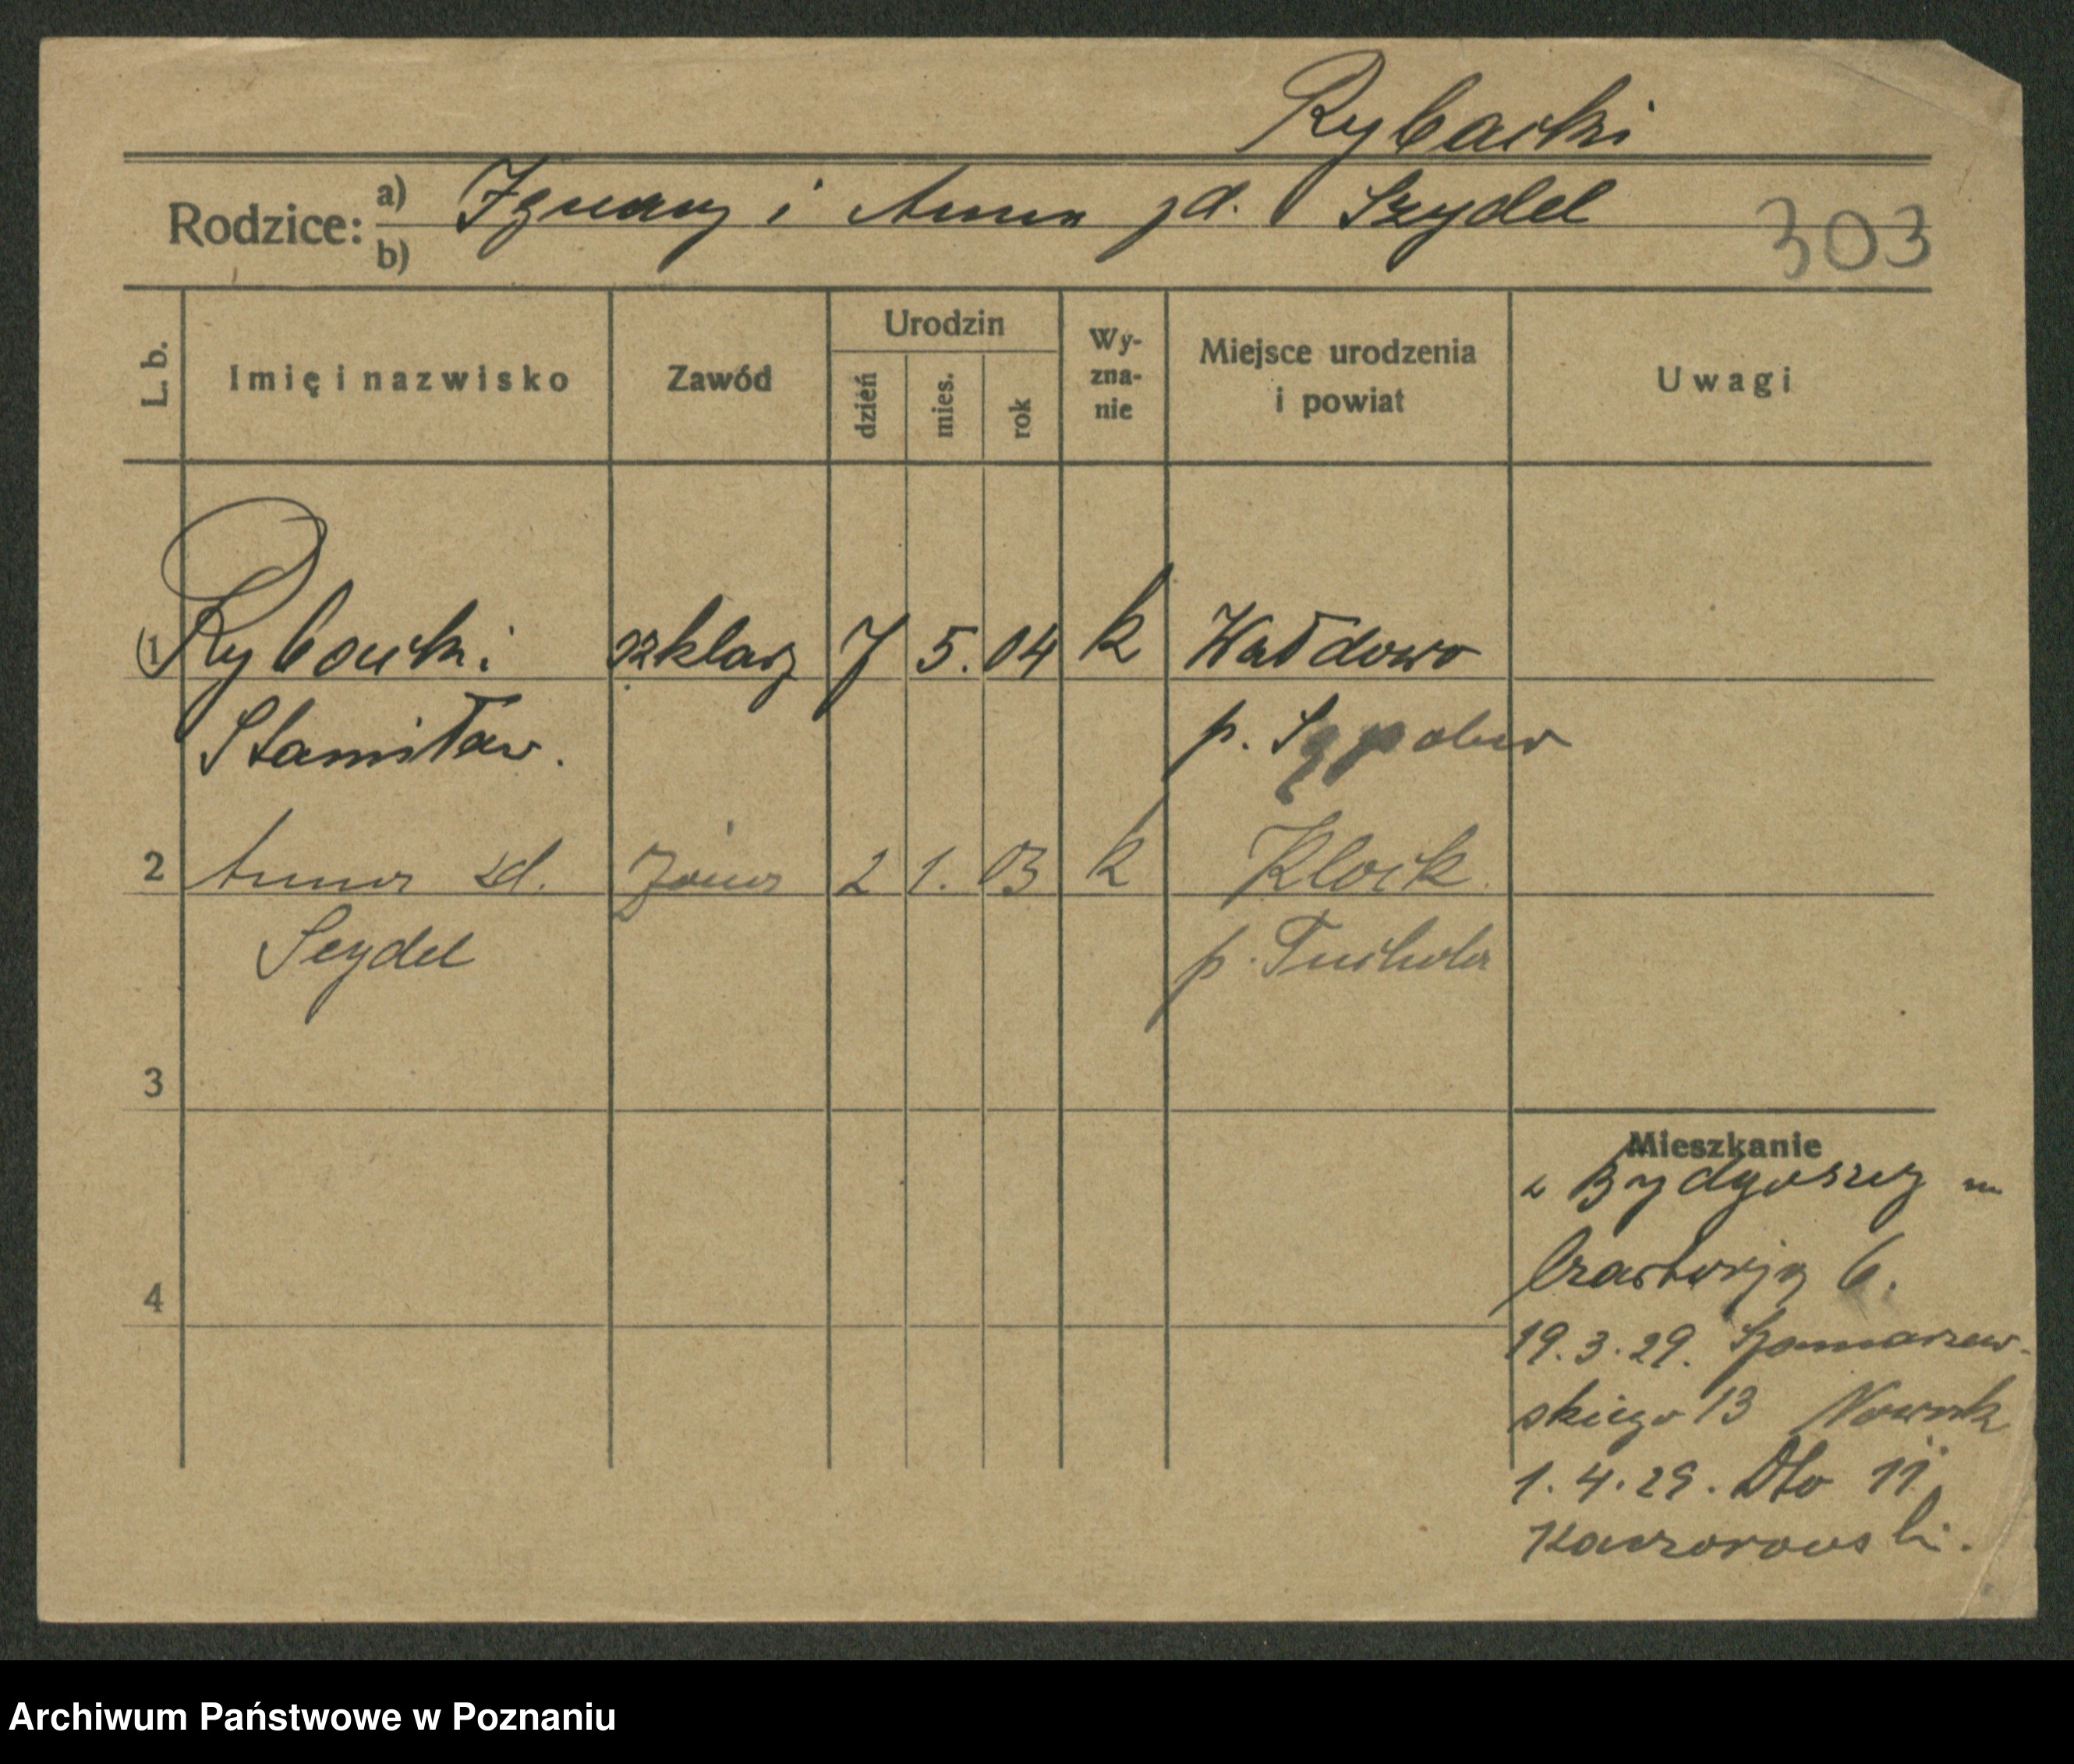 Rybacki
Rodzice: a) Ignacy i Anna zd. Szydel
b)
303
L. b.
Imię i nazwisko
Zawód
Urodzin
dzień
mies.
rok
Wy-
zna-
nie
Miejsce urodzenia
i powiat
Uwagi
1 Rybacki szklarz 7 5. 04 k Wałdowo
Stanisław. p. Sępolno
2 Anna zd. żona 2 1. 03 k
Seydel p. Tuchola
3
4
Mieszkanie
z Bydgoszczy
6.
19.3.29.
skiego 13 Nowak
1.4.29. Dto 11
Kaczorowski.
Archiwum Państwowe w Poznaniu